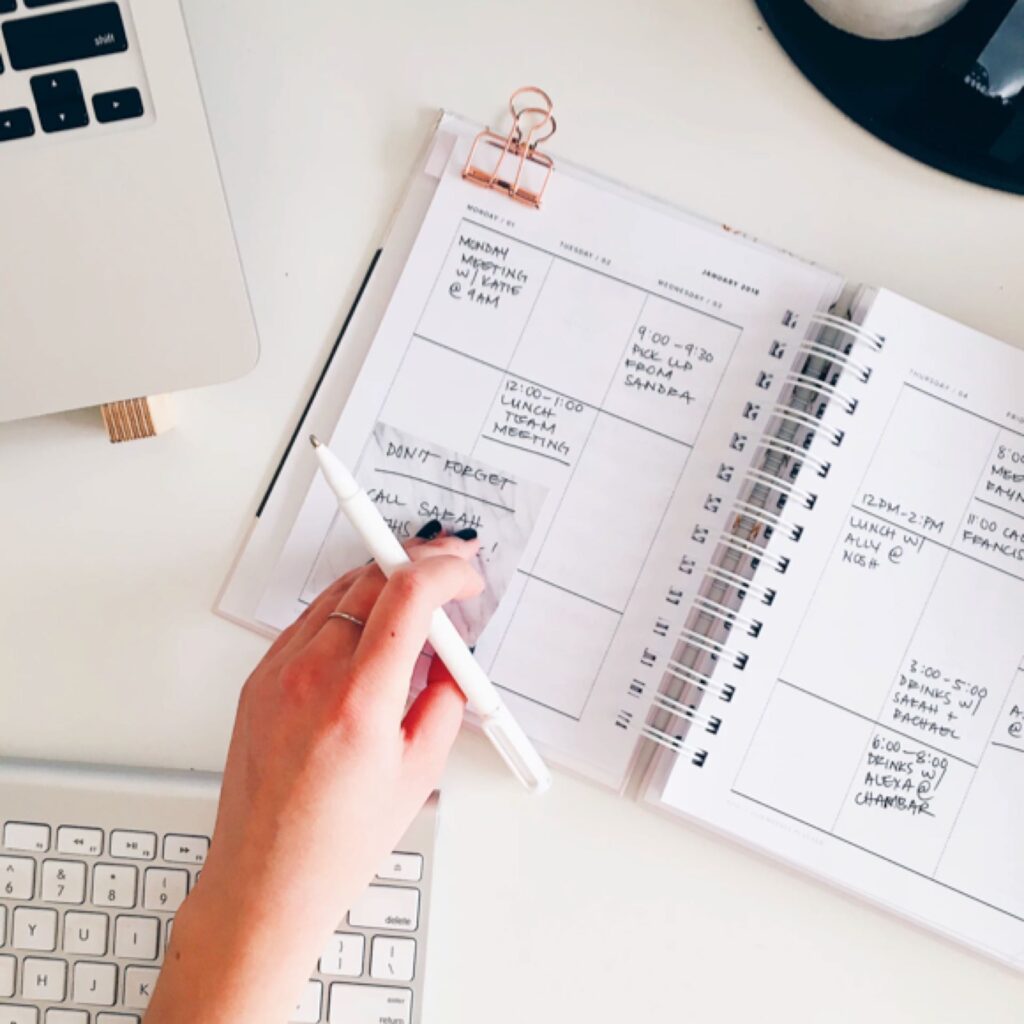 shift
MONDAY / 01
TUESDAY / 02
JANUARY 2018
WEDNESDAY / 03
MONDAY
MEETING
W/ KATIE
@ 9AM
9:00-9:30
PICK UP
FROM
SANDRA
12:00-1:00
LUNCH
TEAM
MEETING
DON'T FORGET
CALL SARAH
!
THURSDAY / 04
8:00
11:00
12PM-2:PM
LUNCH W/
ALLY @
NOSH
3:00-5:00
DRINKS W/
SARAH +
RACHAEL
A
@
6:00-8:00
DRINKS W/
ALEXA @
CHAMBAR
^ & * (
6 7 8 9
Y U I
H J K
delete
} |
] \
enter
return